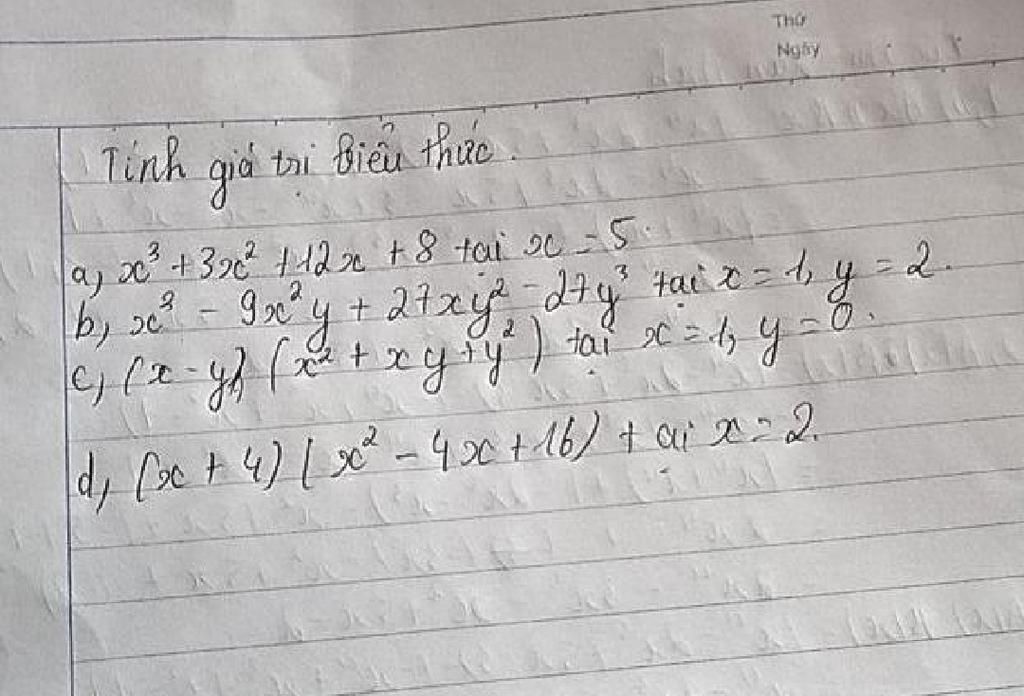 Thứ
Ngày
Tính giá trị biểu thức.
a, x³ + 3x² + 12x + 8 tại x = 5.
b, x³ - 9x²y + 27xy² - 27y³ tại x = 1, y = 2.
c, (x - y) (x² + xy + y²) tại x = 1, y = 0.
d, (x + 4) (x² - 4x + 16) tại x = 2.